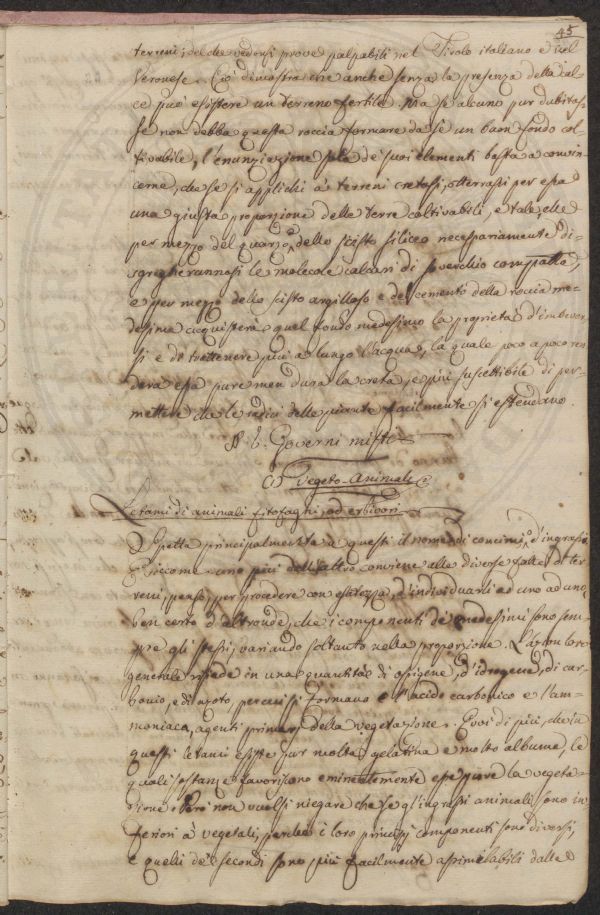 45
terreni; del che vedonsi prove palpabili nel Tirolo italiano e nel
Veronese. Ciò dimostra che anche senza la presenza della cal-
ce può esistere un terreno fertile. Ma se alcuno pur dubitas-
se non debba questa roccia formare da sè un buon fondo col-
tivabile, l'enunziazione sola de' suoi elementi basta a convin-
cerne, che se si applichi a' terreni cretosi, otterrassi per essa
una giusta proporzione delle terre coltivabili, e tale, che
per mezzo del quarzo e dello scisto siliceo necessariamente di-
sgregherannosi le molecole calcari di soverchio compatte,
e per mezzo dello scisto argilloso e del cemento della roccia me-
desima acquisterà quel fondo medesimo la proprietà d'imbever-
si e di trattenere più a lungo l'acqua, la quale poco a poco ren
derà essa pure men dura la creta, e più suscettibile di per-
mettere che le radici delle piante facilmente si estendano.
§. b. Governi misti
Vegeto-Animali
Letami di animali fitofagi, od erbivori
Spetta principalmente a questi il nome di concimi, o d'ingrassi.
Siccome uno più dell'altro conviene alle diverse fatte di ter
reni, penso, per procedere con esatezza, d'individuarli ad uno ad uno,
ben certo d'altronde, che i componenti de' medesimi sono sem-
pre gli stessi, variando soltanto nella proporzione. L'azion loro
generale risiede in una quantità di ossigene, d'idrogene, di car-
bonio, e di azoto, perchè si formano l'acido carbonico e l'am-
moniaca, agenti primarj della vegetazione. Evvi di più, che in
questi letami esiste pur molta gelatina e molto albume, le
quali sostanze favoriscono eminentemente esse pure la vegeta-
zione. Però non vuolsi niegare che se gl'ingrassi animali sono in
feriori a' vegetali, perchè i loro principj componenti sono diversi,
e quelli de' secondi sono più facilmente assimilabili dalle